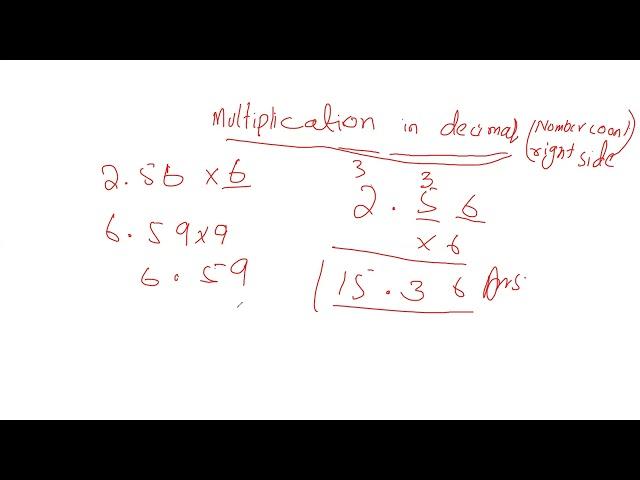 Multiplication in decimal (Number count
right side
2.56 x 6
6.59x9
6.59
3 3
2.56
x 6
15.36 Ans